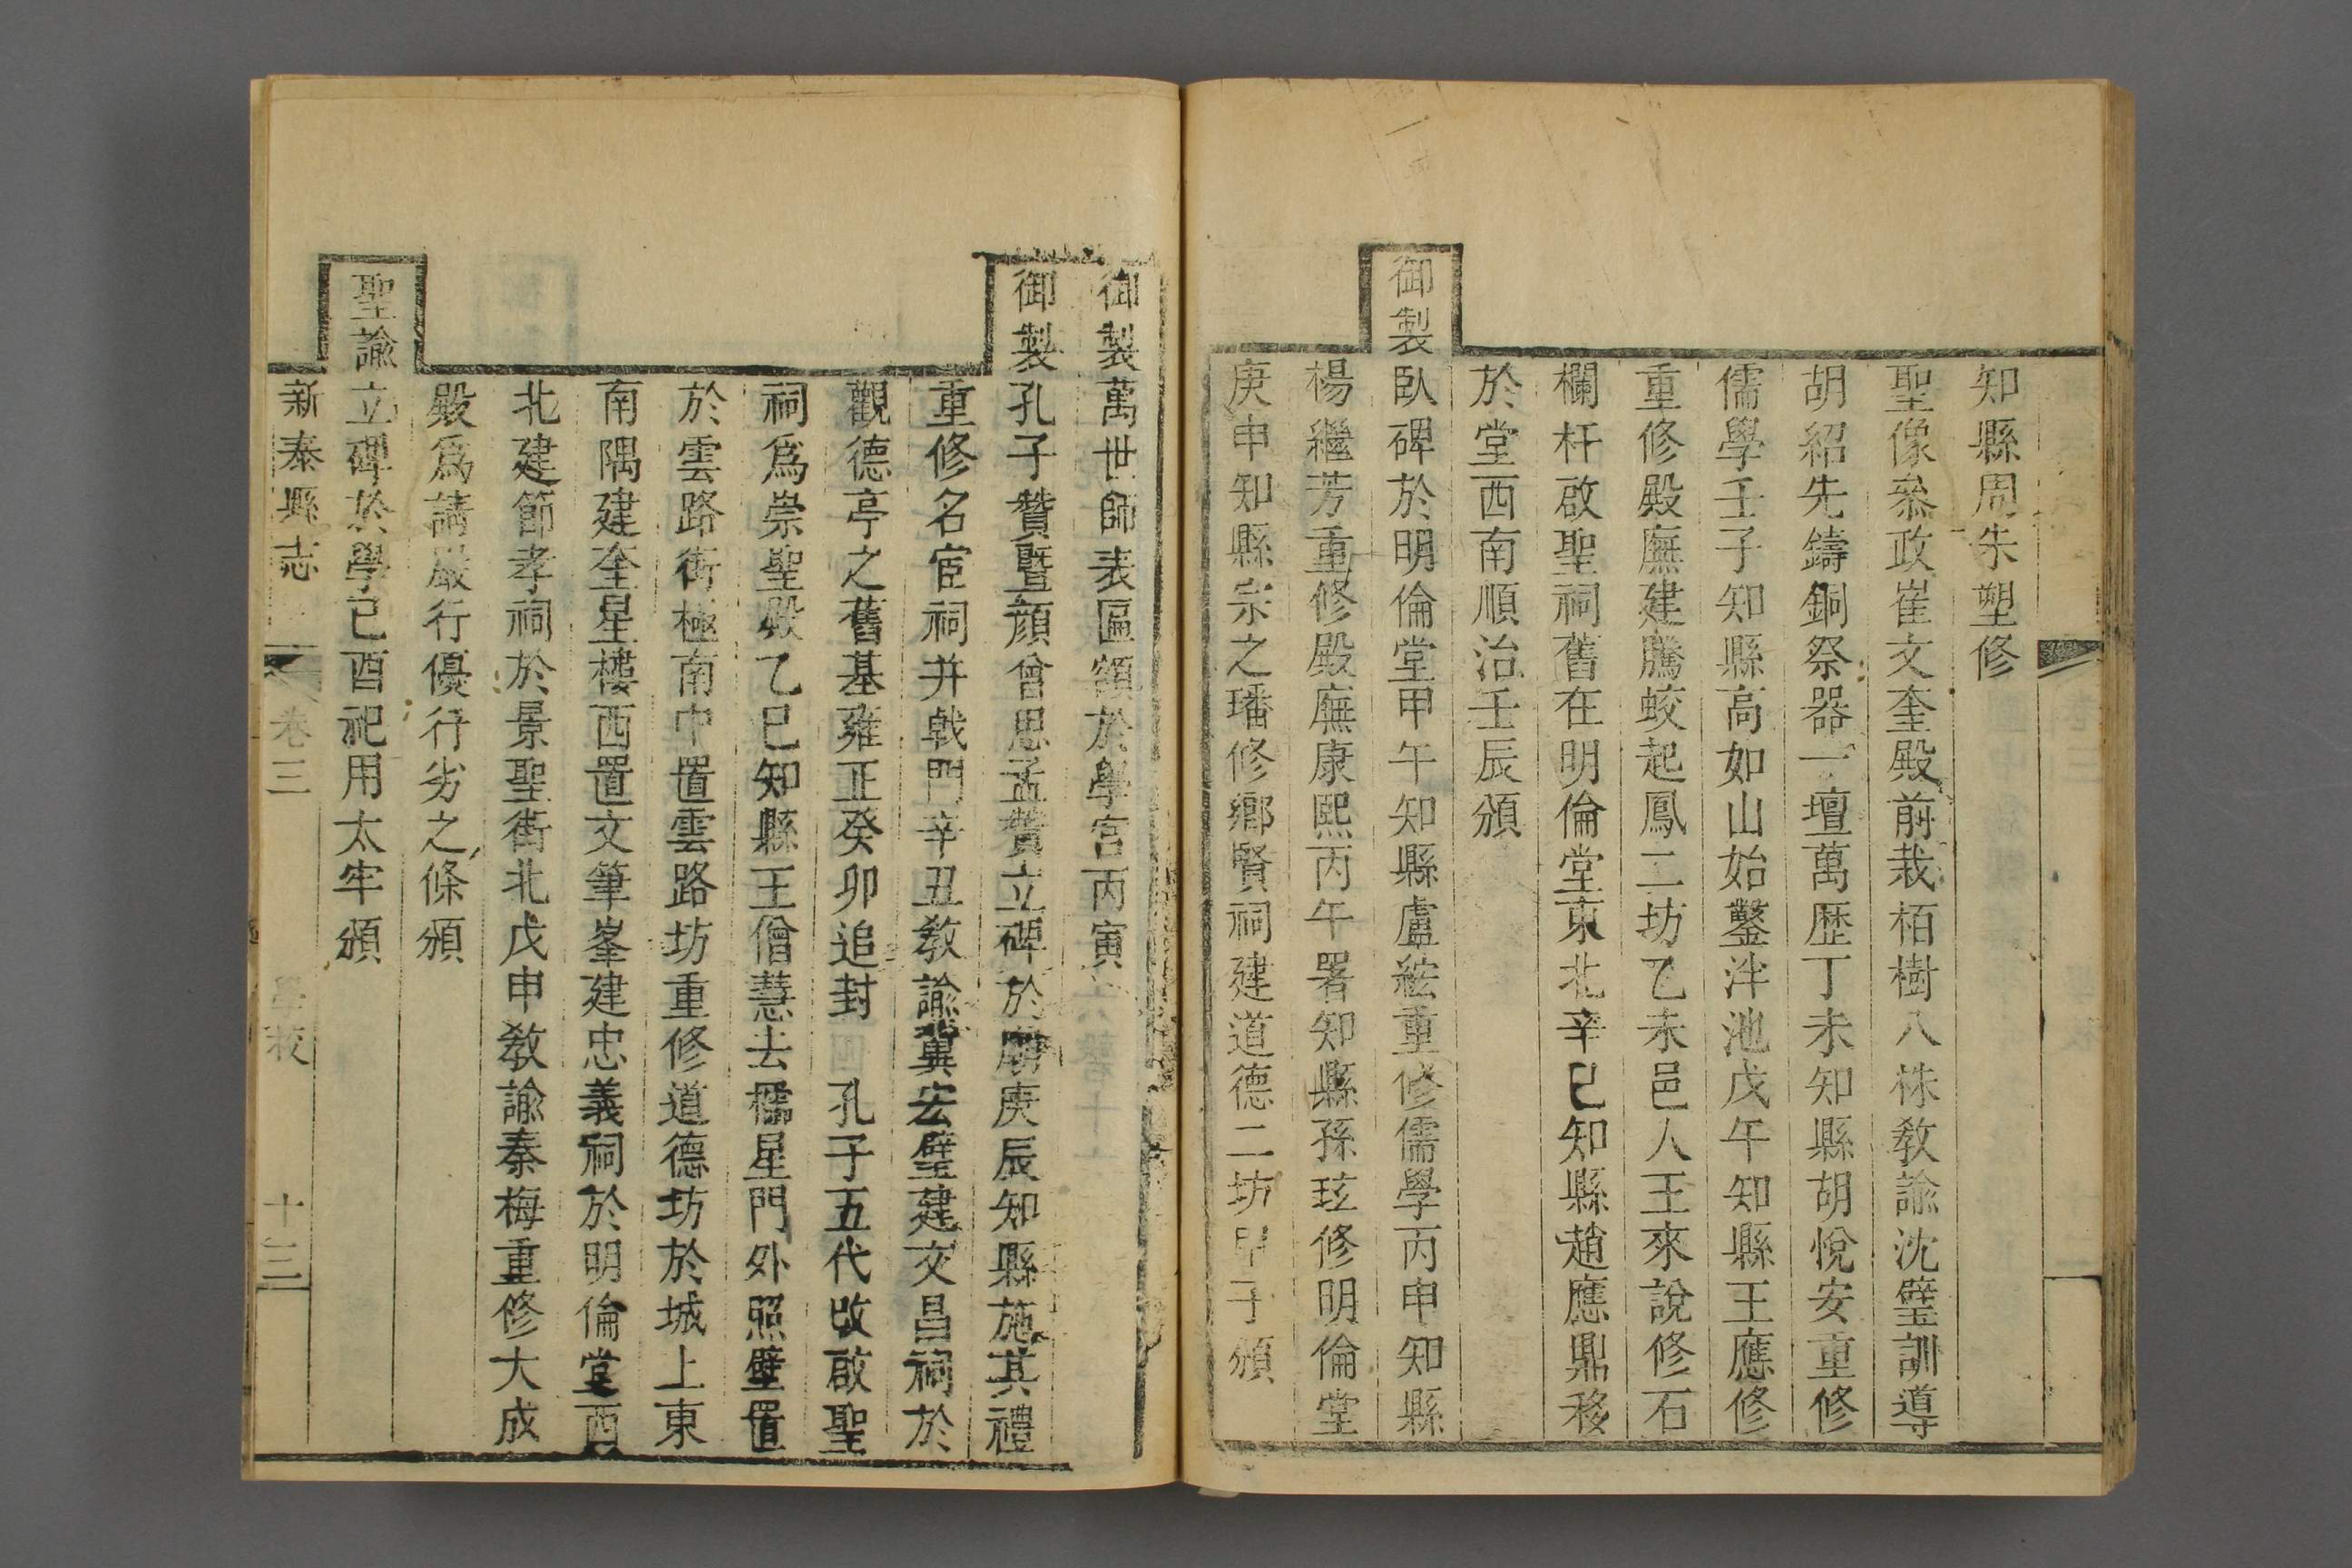 知縣周朱塑修
聖像叅政崔文奎殿前栽栢樹八株教諭沈璧訓導
胡紹先鑄銅祭器一壇萬歷丁未知縣胡悅安重修
儒學壬子知縣高如山始鑿泮池戊午知縣王應修
重修殿廡建騰蛟起鳳二坊乙未邑人王來說修石
欄杆啟聖祠舊在明倫堂東北辛巳知縣趙應鼎移
於堂西南順治壬辰頒
御製臥碑於明倫堂甲午知縣盧綋重修儒學丙申知縣
楊繼芳重修殿廡康熙丙午署知縣孫玹修明倫堂
庚申知縣宗之璠修鄉賢祠建道德二坊甲子頒
御製萬世師表匾額於學宮丙寅
御製孔子贊暨顏曾思孟贊立碑於廟庚辰知縣施其禮
重修名宦祠并戟門辛丑教諭冀宏璧建文昌祠於
觀德亭之舊基雍正癸卯追封 孔子五代改啟聖
祠爲崇聖殿乙巳知縣王僧慧去櫺星門外照壁置
於雲路街極南中置雲路坊重修道德坊於城上東
南隅建奎星樓西置文筆峯建忠義祠於明倫堂西
北建節孝祠於景聖街北戊申教諭秦梅重修大成
殿爲請嚴行優行劣之條頒
聖諭立碑於學己酉祀用太牢頒
新泰縣志 卷三 學校 十三